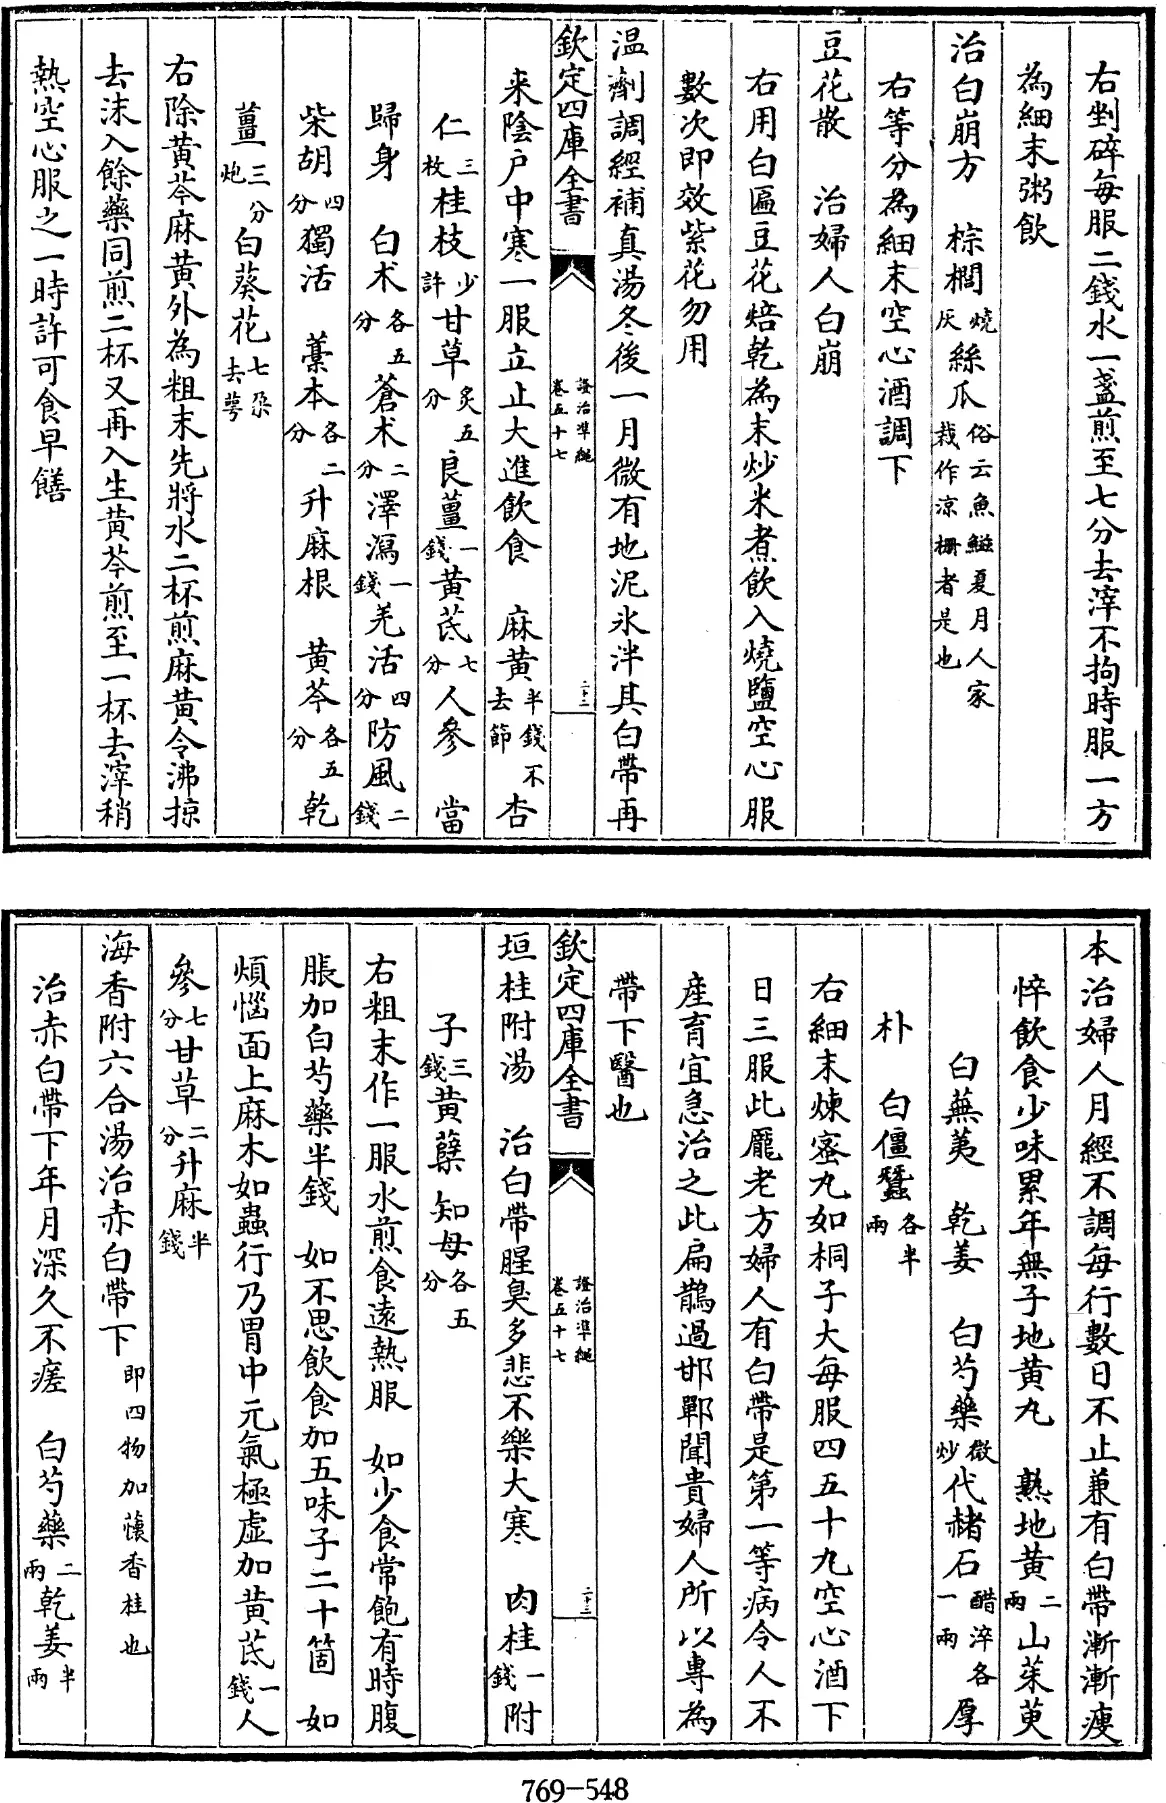 右剉碎每服二錢水一盞煎至七分去滓不拘時服一方
為細末粥飲
治白崩方　棕櫚燒灰絲瓜俗云魚鰦夏月人家栽作涼棚者是也
右等分為細末空心酒調下
豆花散　治婦人白崩
右用白匾豆花焙乾為末炒米煮飲入燒鹽空心服
數次即效紫花勿用
温劑調經補真湯冬後一月微有地泥氷泮其白帶再
欽定四庫全書　證治準繩卷五十七　二十二
来陰户中寒一服立止大進飲食　麻黃半錢不去節杏
仁三枚桂枝少許甘草炙五分良薑一錢黃芪七分人參　當
歸身　白术各五分蒼术二分澤瀉一錢羌活四分防風二錢
柴胡四分獨活　藁本各二分升麻根　黃芩各五分乾
薑三分炮白葵花七朶去萼
右除黃芩麻黃外為粗末先將水二杯煎麻黃令沸掠
去沫入餘藥同煎二杯又再入生黃芩煎至一杯去滓稍
熱空心服之一時許可食早饍
本治婦人月經不調每行數日不止兼有白帶漸漸瘦
悴飲食少味累年無子地黃丸　熟地黃二兩山茱萸
白蕪荑　乾姜　白芍藥微炒代赭石醋淬各一兩厚
朴　白僵蠶各半兩
右細末煉蜜丸如桐子大每服四五十丸空心酒下
日三服此龐老方婦人有白帶是第一等病令人不
産育宜急治之此扁鵲過邯鄲聞貴婦人所以專為
帶下醫也
欽定四庫全書　證治準繩卷五十七　二十三
垣桂附湯　治白帶腥臭多悲不樂大寒　肉桂一錢附
子三錢黃蘗　知母各五分
右粗末作一服水煎食遠熱服　如少食常飽有時腹
脹加白芍藥半錢　如不思飲食加五味子二十箇　如
煩惱面上麻木如蟲行乃胃中元氣極虛加黃芪一錢人
參七分甘草二分升麻半錢
海香附六合湯治赤白帶下即四物加懷香桂也
治赤白帶下年月深久不瘥　白芍藥二兩乾姜半兩
769-548